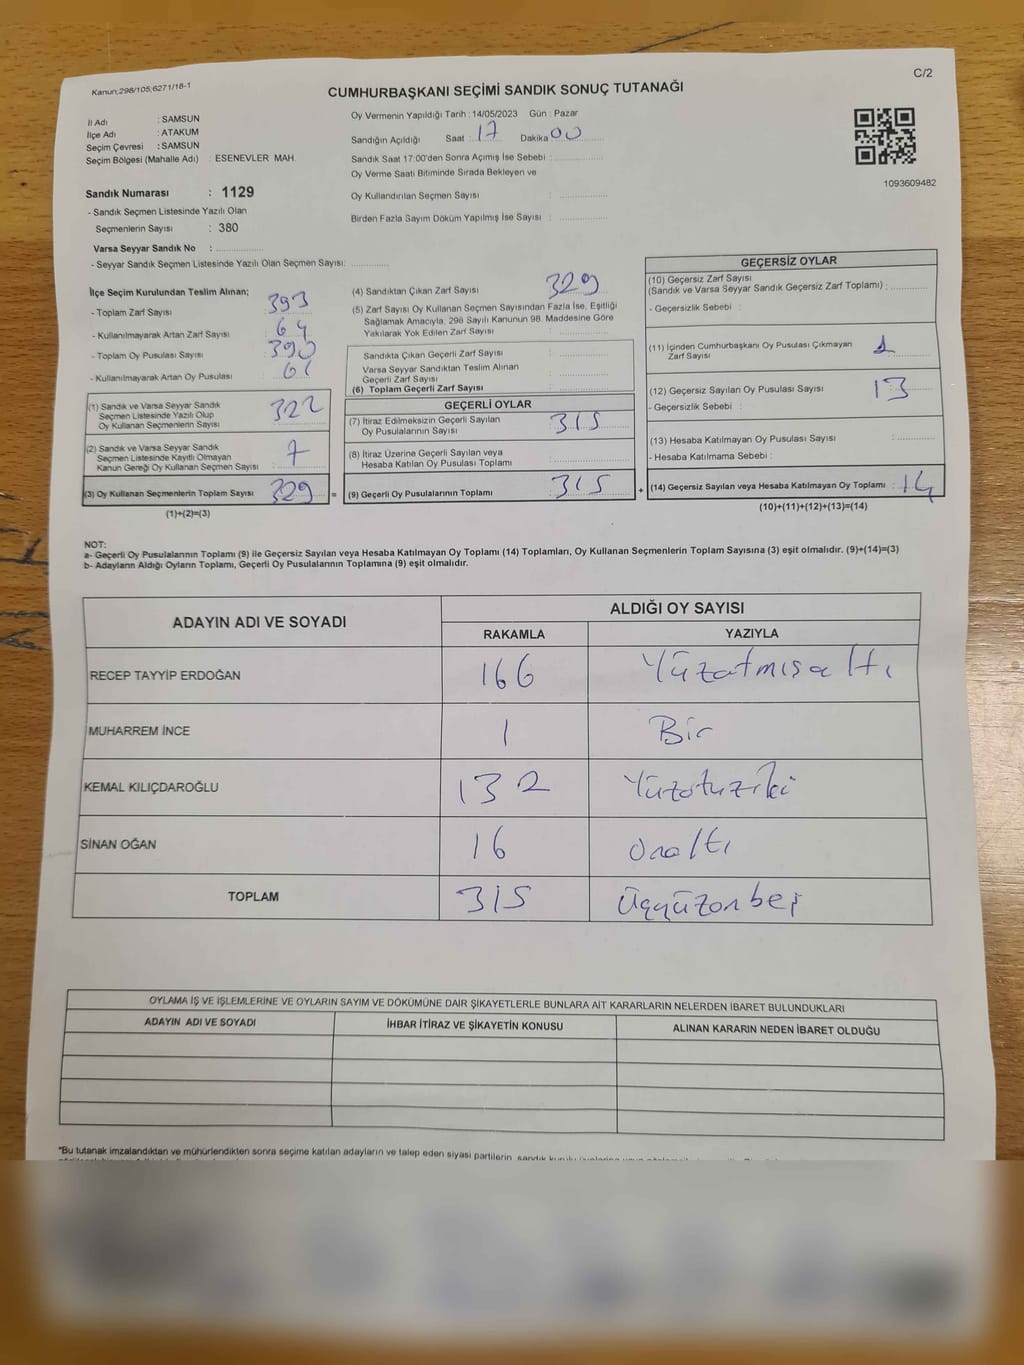 Kanun;298/105;6271/18-1
C/2
CUMHURBAŞKANI SEÇİMİ SANDIK SONUÇ TUTANAĞI
İl Adı : SAMSUN
İlçe Adı : ATAKUM
Seçim Çevresi : SAMSUN
Seçim Bölgesi (Mahalle Adı) : ESENEVLER MAH.
Oy Vermenin Yapıldığı Tarih : 14/05/2023 Gün : Pazar
Sandığın Açıldığı Saat : 17 Dakika 00
Sandık Saat 17:00'den Sonra Açımış İse Sebebi :
Oy Verme Saati Bitiminde Sırada Bekleyen ve
Oy Kullandırılan Seçmen Sayısı :
Birden Fazla Sayım Döküm Yapılmış İse Sayısı :
1093609482
Sandık Numarası : 1129
- Sandık Seçmen Listesinde Yazılı Olan
Seçmenlerin Sayısı : 380
Varsa Seyyar Sandık No :
- Seyyar Sandık Seçmen Listesinde Yazılı Olan Seçmen Sayısı:
İlçe Seçim Kurulundan Teslim Alınan;
- Toplam Zarf Sayısı : 393
- Kullanılmayarak Artan Zarf Sayısı : 64
- Toplam Oy Pusulası Sayısı : 390
- Kullanılmayarak Artan Oy Pusulası : 61
(1) Sandık ve Varsa Seyyar Sandık
Seçmen Listesinde Yazılı Olup
Oy Kullanan Seçmenlerin Sayısı : 322
(2) Sandık ve Varsa Seyyar Sandık
Seçmen Listesinde Kayıtlı Olmayan
Kanun Gereği Oy Kullanan Seçmen Sayısı : 7
(3) Oy Kullanan Seçmenlerin Toplam Sayısı : 329 =
(1)+(2)=(3)
(4) Sandıktan Çıkan Zarf Sayısı : 329
(5) Zarf Sayısı Oy Kullanan Seçmen Sayısından Fazla İse, Eşitliği
Sağlamak Amacıyla; 298 Sayılı Kanunun 98. Maddesine Göre
Yakılarak Yok Edilen Zarf Sayısı :
Sandıkta Çıkan Geçerli Zarf Sayısı :
Varsa Seyyar Sandıktan Teslim Alınan
Geçerli Zarf Sayısı :
(6) Toplam Geçerli Zarf Sayısı :
GEÇERLİ OYLAR
(7) İtiraz Edilmeksizin Geçerli Sayılan
Oy Pusulalarının Sayısı : 315
(8) İtiraz Üzerine Geçerli Sayılan veya
Hesaba Katılan Oy Pusulası Toplamı :
(9) Geçerli Oy Pusulalarının Toplamı : 315 +
GEÇERSİZ OYLAR
(10) Geçersiz Zarf Sayısı
(Sandık ve Varsa Seyyar Sandık Geçersiz Zarf Toplamı) :
- Geçersizlik Sebebi :
(11) İçinden Cumhurbaşkanı Oy Pusulası Çıkmayan
Zarf Sayısı : 1
(12) Geçersiz Sayılan Oy Pusulası Sayısı : 13
- Geçersizlik Sebebi :
(13) Hesaba Katılmayan Oy Pusulası Sayısı :
- Hesaba Katılmama Sebebi :
(14) Geçersiz Sayılan veya Hesaba Katılmayan Oy Toplamı : 14
(10)+(11)+(12)+(13)=(14)
NOT:
a- Geçerli Oy Pusulalarının Toplamı (9) ile Geçersiz Sayılan veya Hesaba Katılmayan Oy Toplamı (14) Toplamları, Oy Kullanan Seçmenlerin Toplam Sayısına (3) eşit olmalıdır. (9)+(14)=(3)
b- Adayların Aldığı Oyların Toplamı, Geçerli Oy Pusulalarının Toplamına (9) eşit olmalıdır.
ADAYIN ADI VE SOYADI ALDIĞI OY SAYISI
RAKAMLA YAZIYLA
RECEP TAYYİP ERDOĞAN 166 Yüzatmışaltı
MUHARREM İNCE 1 Bir
KEMAL KILIÇDAROĞLU 132 Yüzotuziki
SİNAN OĞAN 16 onaltı
TOPLAM 315 Üçyüzonbeş
OYLAMA İŞ VE İŞLEMLERİNE VE OYLARIN SAYIM VE DÖKÜMÜNE DAİR ŞİKAYETLERLE BUNLARA AİT KARARLARIN NELERDEN İBARET BULUNDUKLARI
ADAYIN ADI VE SOYADI İHBAR İTİRAZ VE ŞİKAYETİN KONUSU ALINAN KARARIN NEDEN İBARET OLDUĞU
"Bu tutanak imzalandıktan ve mühürlendikten sonra seçime katılan adayların ve talep eden siyasi partilerin